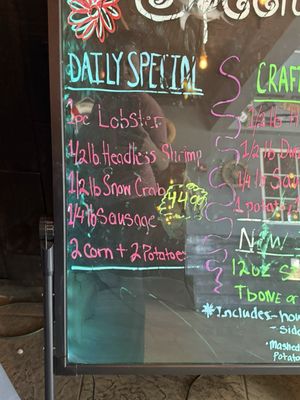 DAILY SPECIAL
1pc Lobster
1/2 lb. Headless Shrimp
1/2 lb Snow Crab
1/4 lb Sausage
2 corn + 2 Potatoes
CRAF
1/2 lb
1/2 lb
1/4 lb
1 potato
NEW
12oz S
TBone
*Includes-
-Side
-Mashed
Potato